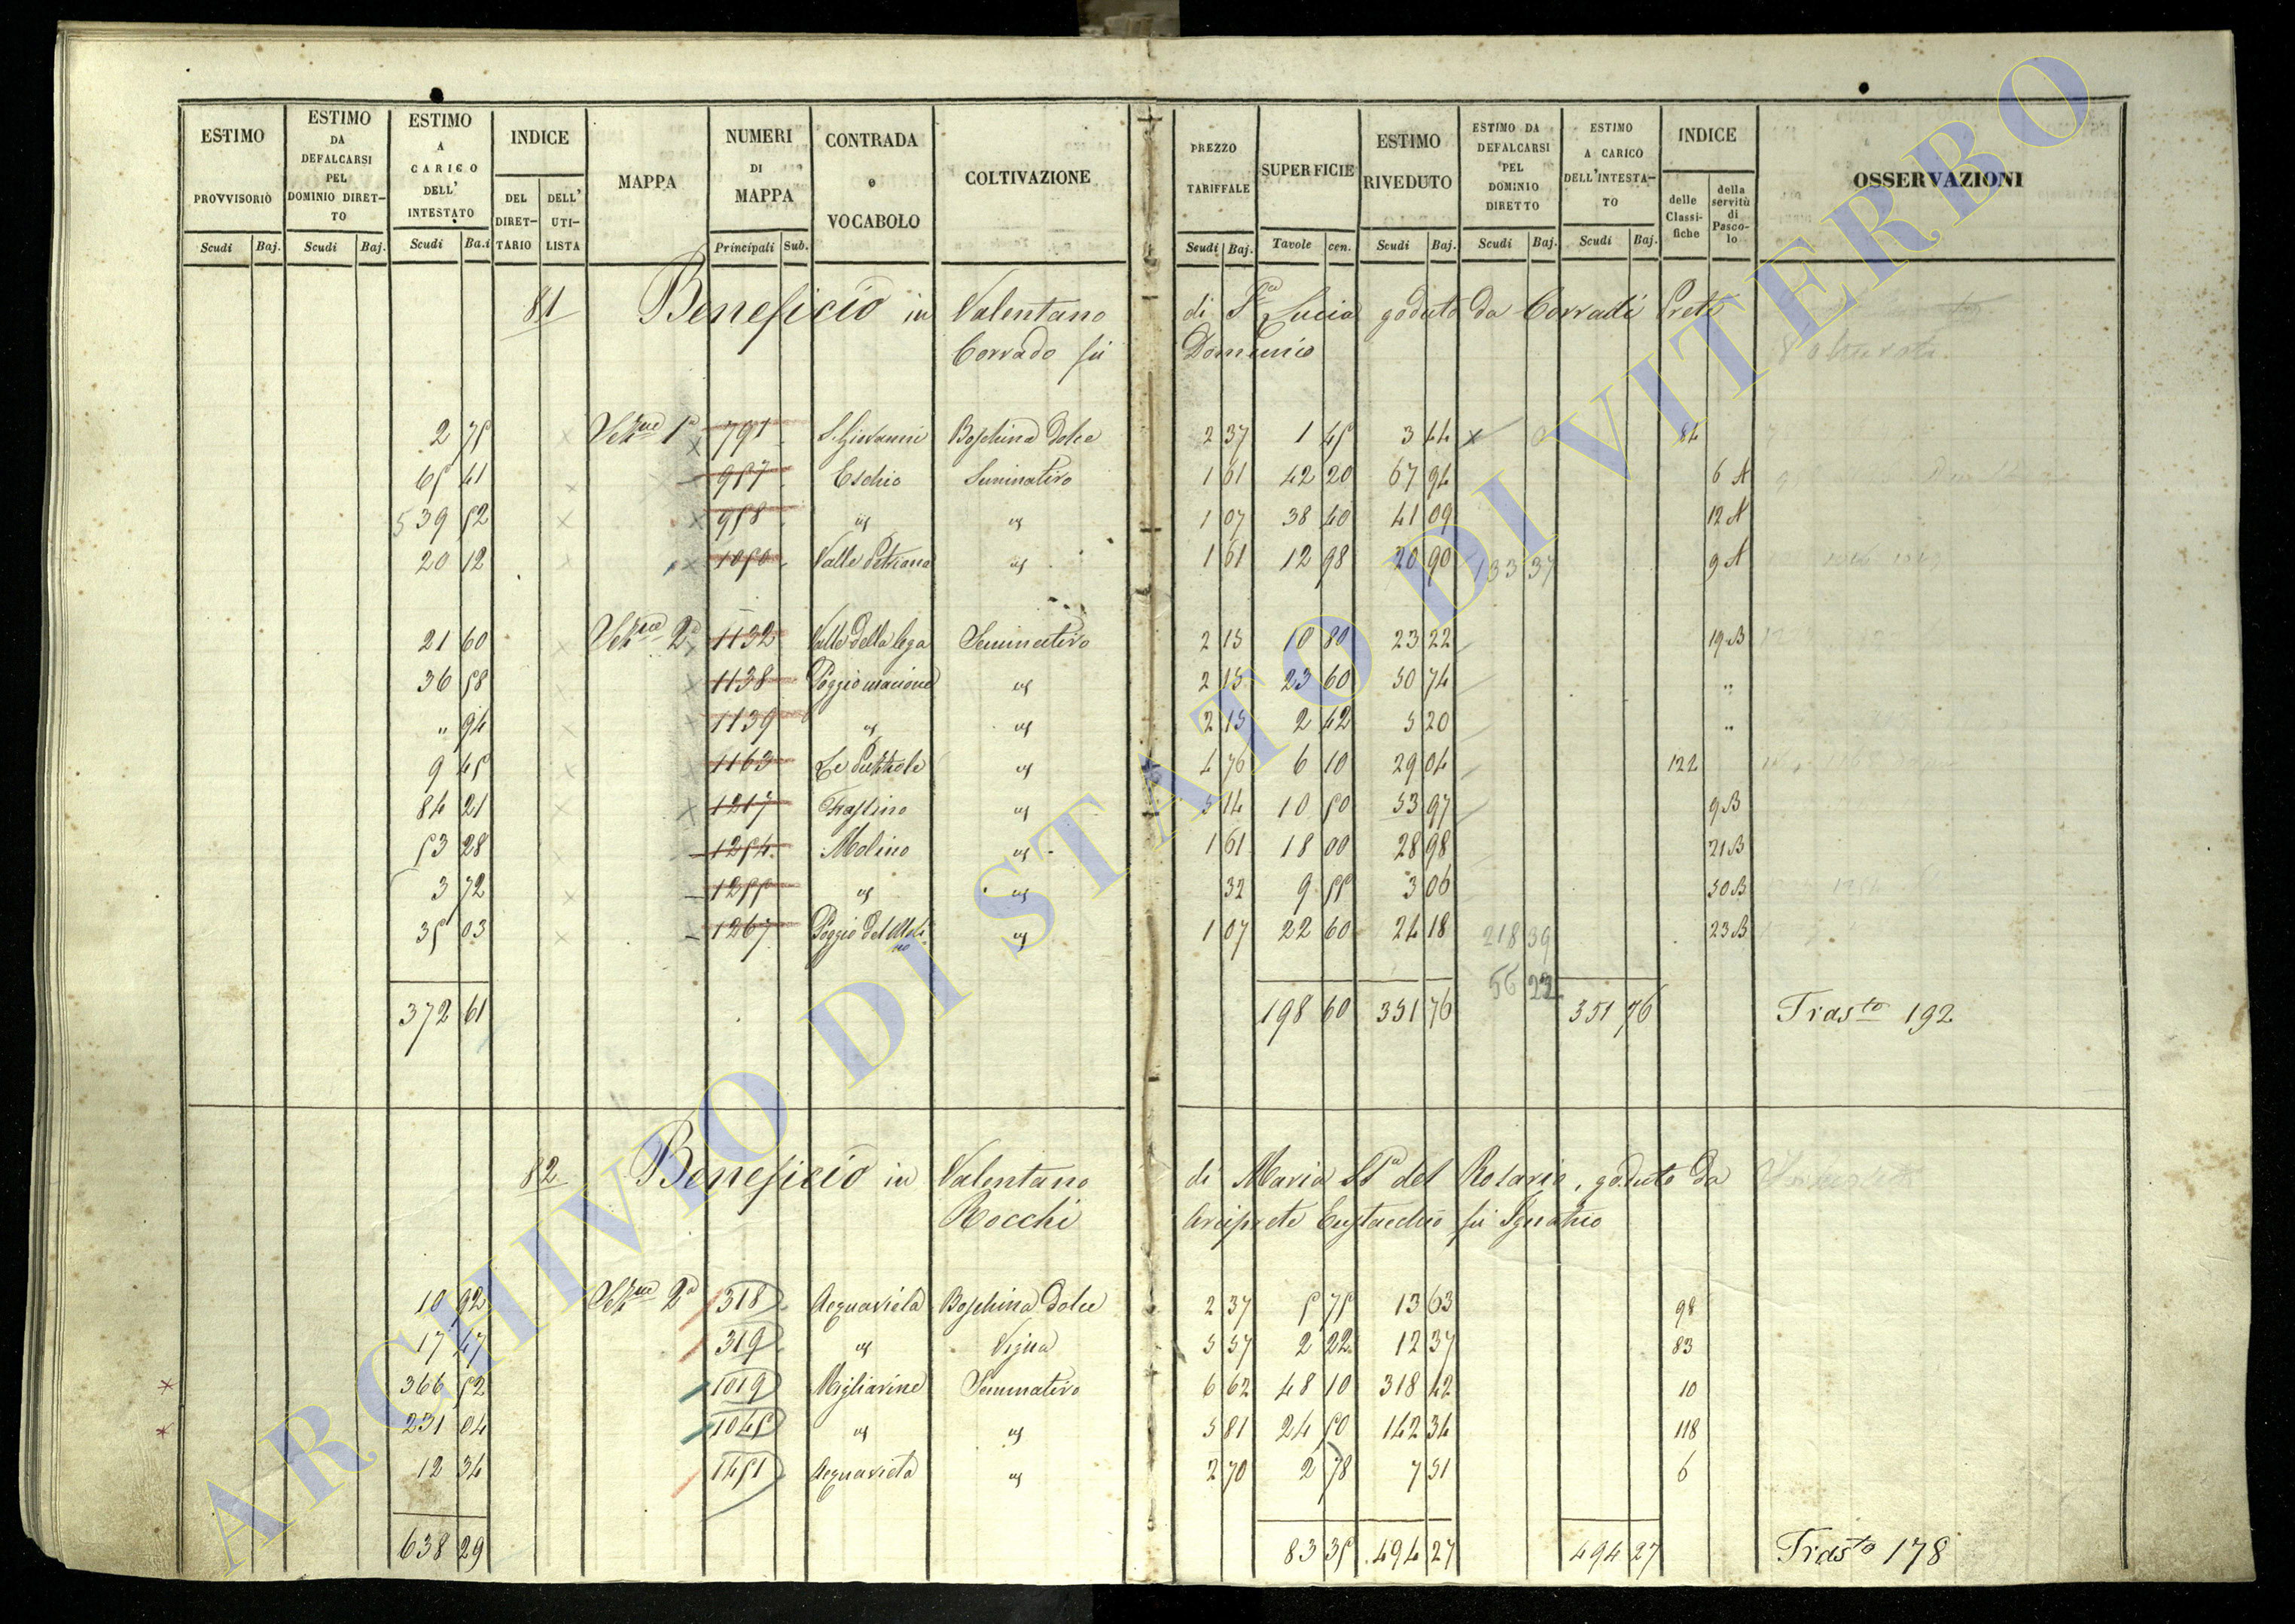 ESTIMO PROVVISORIO | ESTIMO DA DEFALCARSI PEL DOMINIO DIRETTO | ESTIMO A CARICO DELL' INTESTATO | INDICE | MAPPA | NUMERI DI MAPPA | CONTRADA e VOCABOLO | COLTIVAZIONE | PREZZO TARIFFALE | SUPERFICIE | ESTIMO RIVEDUTO | ESTIMO DA DEFALCARSI PEL DOMINIO DIRETTO | ESTIMO A CARICO DELL'INTESTATO | INDICE | OSSERVAZIONI
DEL DIRETTARIO | DELL' UTILISTA | delle Classifiche | della servitù di Pascolo
Scudi | Baj. | Scudi | Baj. | Scudi | Ba.i | Principali | Sub. | Scudi | Baj. | Tavole | cen. | Scudi | Baj. | Scudi | Baj. | Scudi | Baj.
81 Beneficio in Valentano di Sa Lucia goduto da Corradi Prete
Corrado fu Domenico
2 75 | Sezne 1a | 791 | S. Giovanni | Boschina dolce | 2 37 | 1 45 | 3 44 | 84
65 41 | 957 | Eschio | Seminativo | 1 61 | 42 20 | 67 94 | 6 A
39 52 | 958 | " | " | 1 07 | 38 40 | 41 09 | 12 A
20 12 | 1050 | Valle | " | 1 61 | 12 98 | 20 90 | 133 37 | 9 A
21 60 | Sezne 2a | 1132 | Valle della lega | Seminativo | 2 15 | 10 80 | 23 22 | 19 B
36 58 | 1138 | Poggio | " | 2 15 | 23 60 | 50 74 | "
" 94 | 1139 | " | " | 2 15 | 2 42 | 5 20 | "
9 45 | 1163 | Le | " | 4 76 | 6 10 | 29 04 | 122
84 21 | 1217 | " | 5 14 | 10 50 | 53 97 | 9 B
53 28 | 1254 | Molino | " | 1 61 | 18 00 | 28 98 | 21 B
3 72 | 1255 | " | " | 32 | 9 55 | 3 06 | 30 B
35 03 | 1267 | Poggio del Molino | " | 1 07 | 22 60 | 24 18 | 218 39 | 23 B
56 22
372 61 | 198 60 | 351 76 | 351 76 | Trasto 192
82 Beneficio in Valentano di Maria SSa del Rosario, goduto da
Rocchi Arciprete Eustachio fu Ignazio
10 92 | Sezne 2a | 318 | Acquavieta | Boschina dolce | 2 37 | 5 75 | 13 63 | 98
17 47 | 319 | " | Vigna | 5 57 | 2 22 | 12 37 | 83
366 52 | 1019 | Migliarine | Seminativo | 6 62 | 48 10 | 318 42 | 10
231 04 | 1045 | " | " | 5 81 | 24 50 | 142 34 | 118
12 34 | 1451 | Acquavieta | " | 2 70 | 2 78 | 7 51 | 6
638 29 | 83 35 | 494 27 | 494 27 | Trasto 178
ARCHIVIO DI STATO DI VITERBO